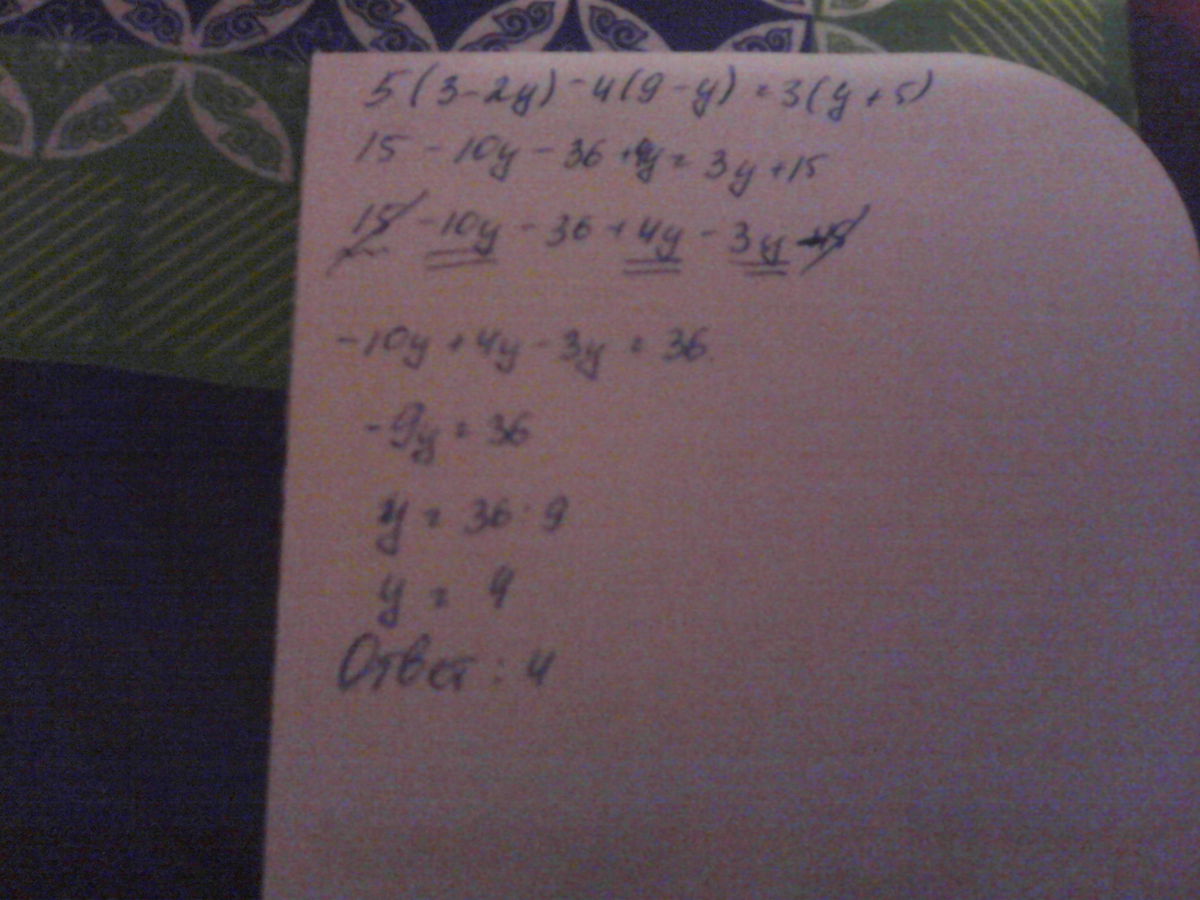 5(3-2y)-4(9-y)=3(y+5)
15-10y-36+4y=3y+15
15-10y-36+4y-3y-15
-10y+4y-3y=36
-9y=36
y=36:9
y=4
Ответ: 4